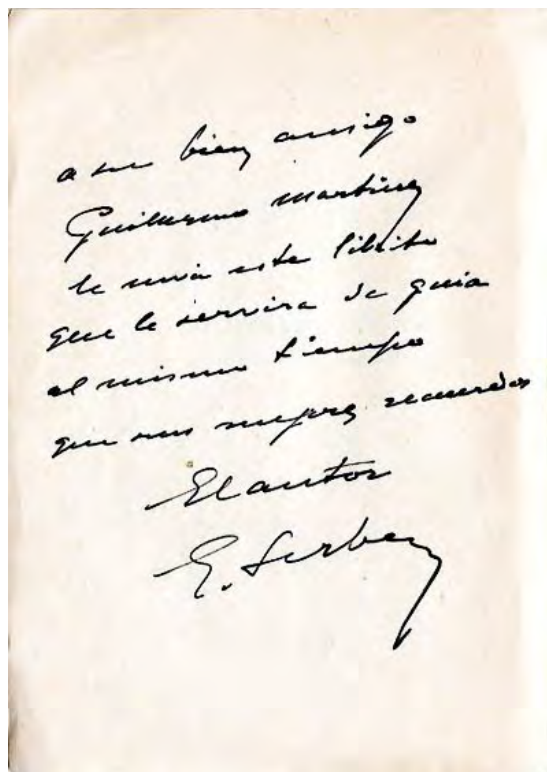 a su bien amigo
Guillermo martinez
le envia este librito
que le servira de guia
al mismo tiempo
que sus mejores recuerdos
El autor
E.